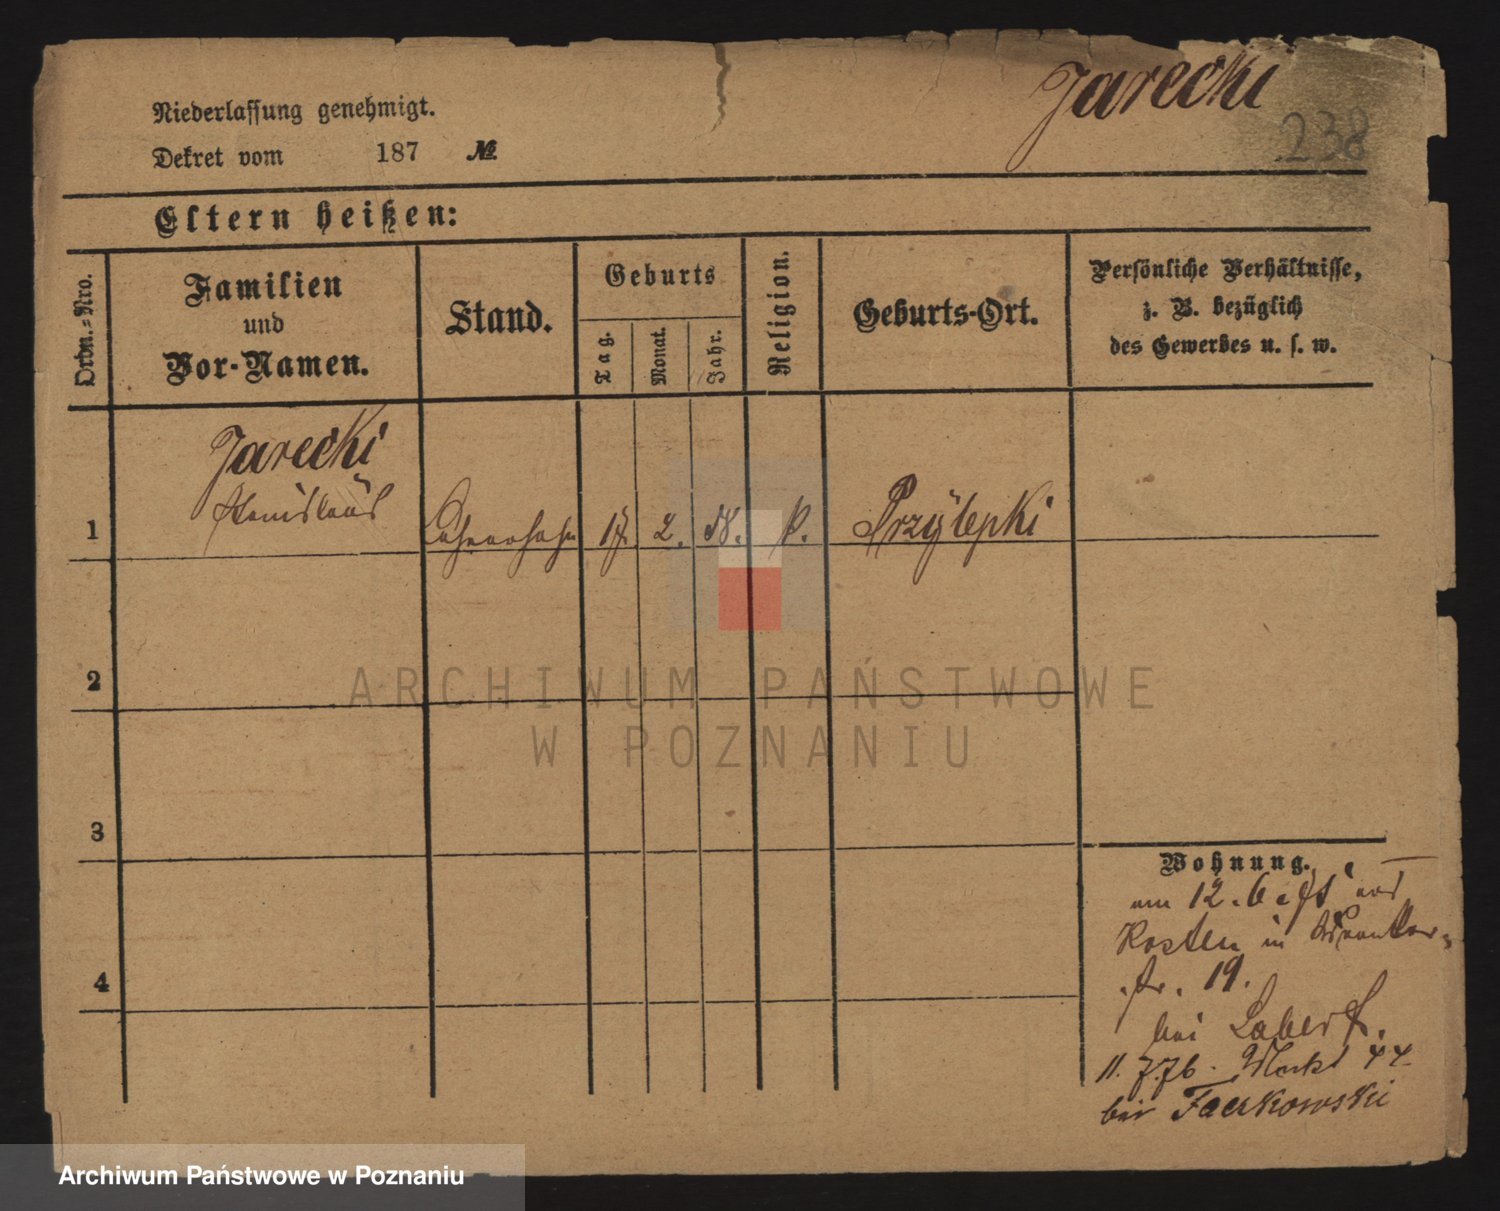 Jarecki
238
Niederlassung genehmigt.
Dekret vom 187 №
Eltern heißen:
Ordn.=Nro.
Familien
und
Vor-Namen.
Stand.
Geburts
Tag.
Monat.
Jahr.
Religion.
Geburts-Ort.
Persönliche Verhältnisse,
z. B. bezüglich
des Gewerbes u. s. w.
Jarecki
Stanislaus
1 17. 2. 58. k. Przylepki
2
ARCHIWUM PAŃSTWOWE
W POZNANIU
3
Wohnung.
am 12. 6. aus
Kosten in
str. 19.
bei
4
11. 7.76. Markt 44
bei Faczkowski
Archiwum Państwowe w Poznaniu